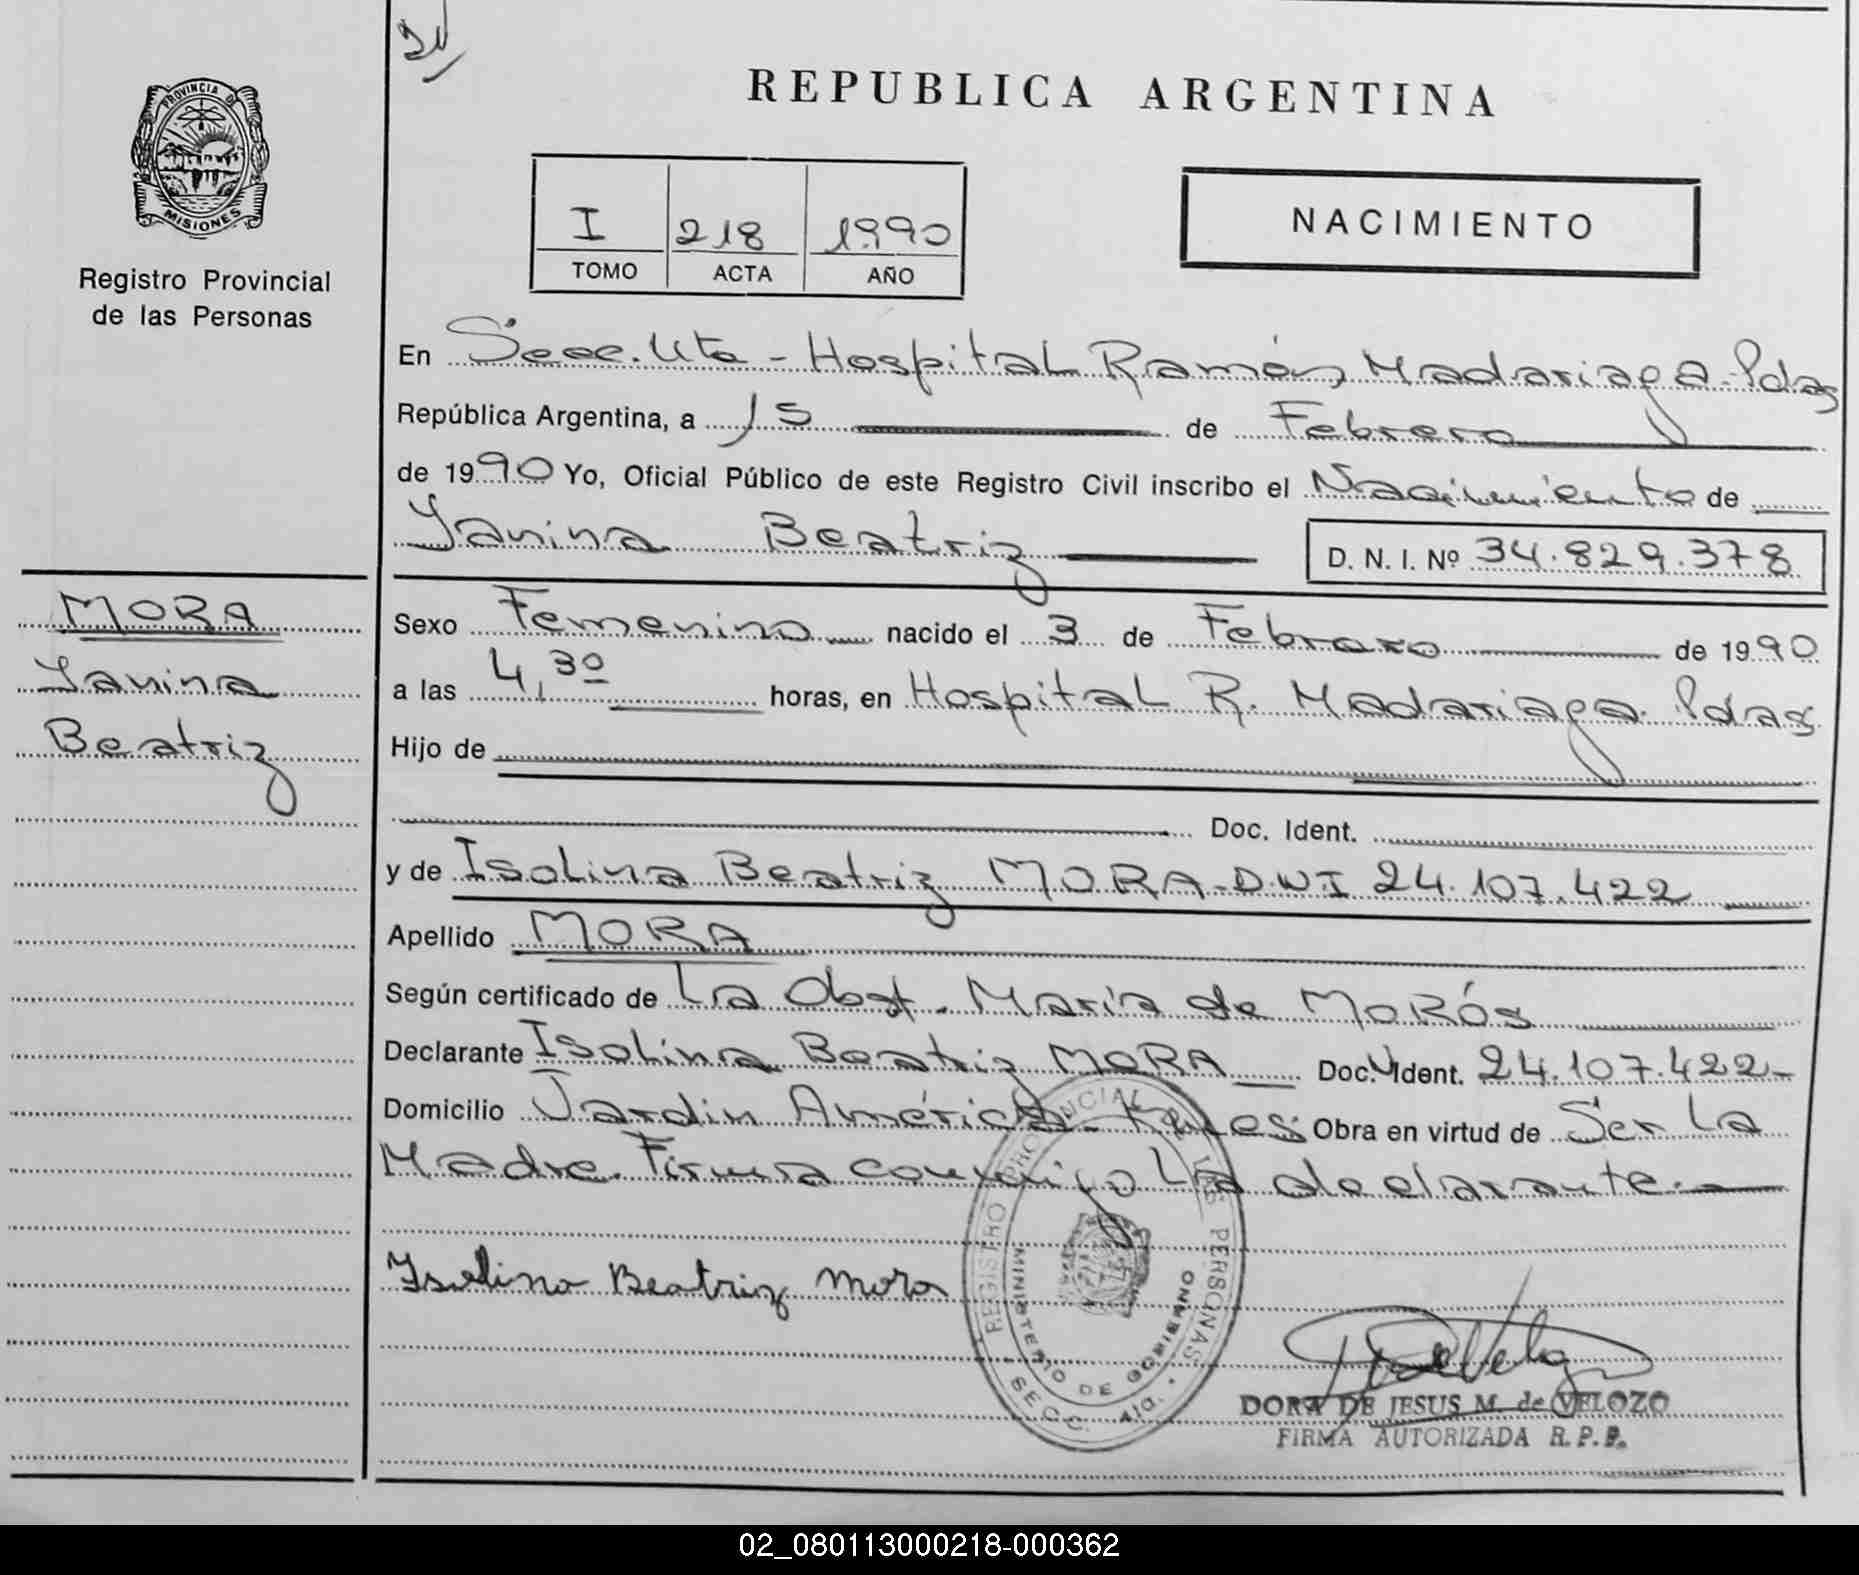 REPUBLICA ARGENTINA
PROVINCIA DE
MISIONES
Registro Provincial
de las Personas
I 218 1990
TOMO ACTA AÑO
NACIMIENTO
En Secc. 4ta - Hospital Ramón Madariaga - Pdas
República Argentina, a 15 de Febrero
de 1990 Yo, Oficial Público de este Registro Civil inscribo el Nacimiento de
Yanina Beatriz
D. N. I. Nº 34.829.378
MORA
Yanina
Beatriz
Sexo Femenino nacido el 3 de Febrero de 1990
a las 4,30 horas, en Hospital R. Madariaga. Pdas
Hijo de
Doc. Ident.
y de Isolina Beatriz MORA - DNI 24.107.422
Apellido MORA
Según certificado de La Obst. María de MoRós
Declarante Isolina Beatriz MORA Doc. Ident. 24.107.422-
Domicilio Jardín América - Obra en virtud de Ser La
Madre. Firma conmigo La declarante.-
Isolina Beatriz Mora
REGISTRO PROVINCIAL DE LAS PERSONAS
MINISTERIO DE GOBIERNO
SECC. 4ta.
DORA DE JESUS M. de VELOZO
FIRMA AUTORIZADA R. P. P.
02_080113000218-000362